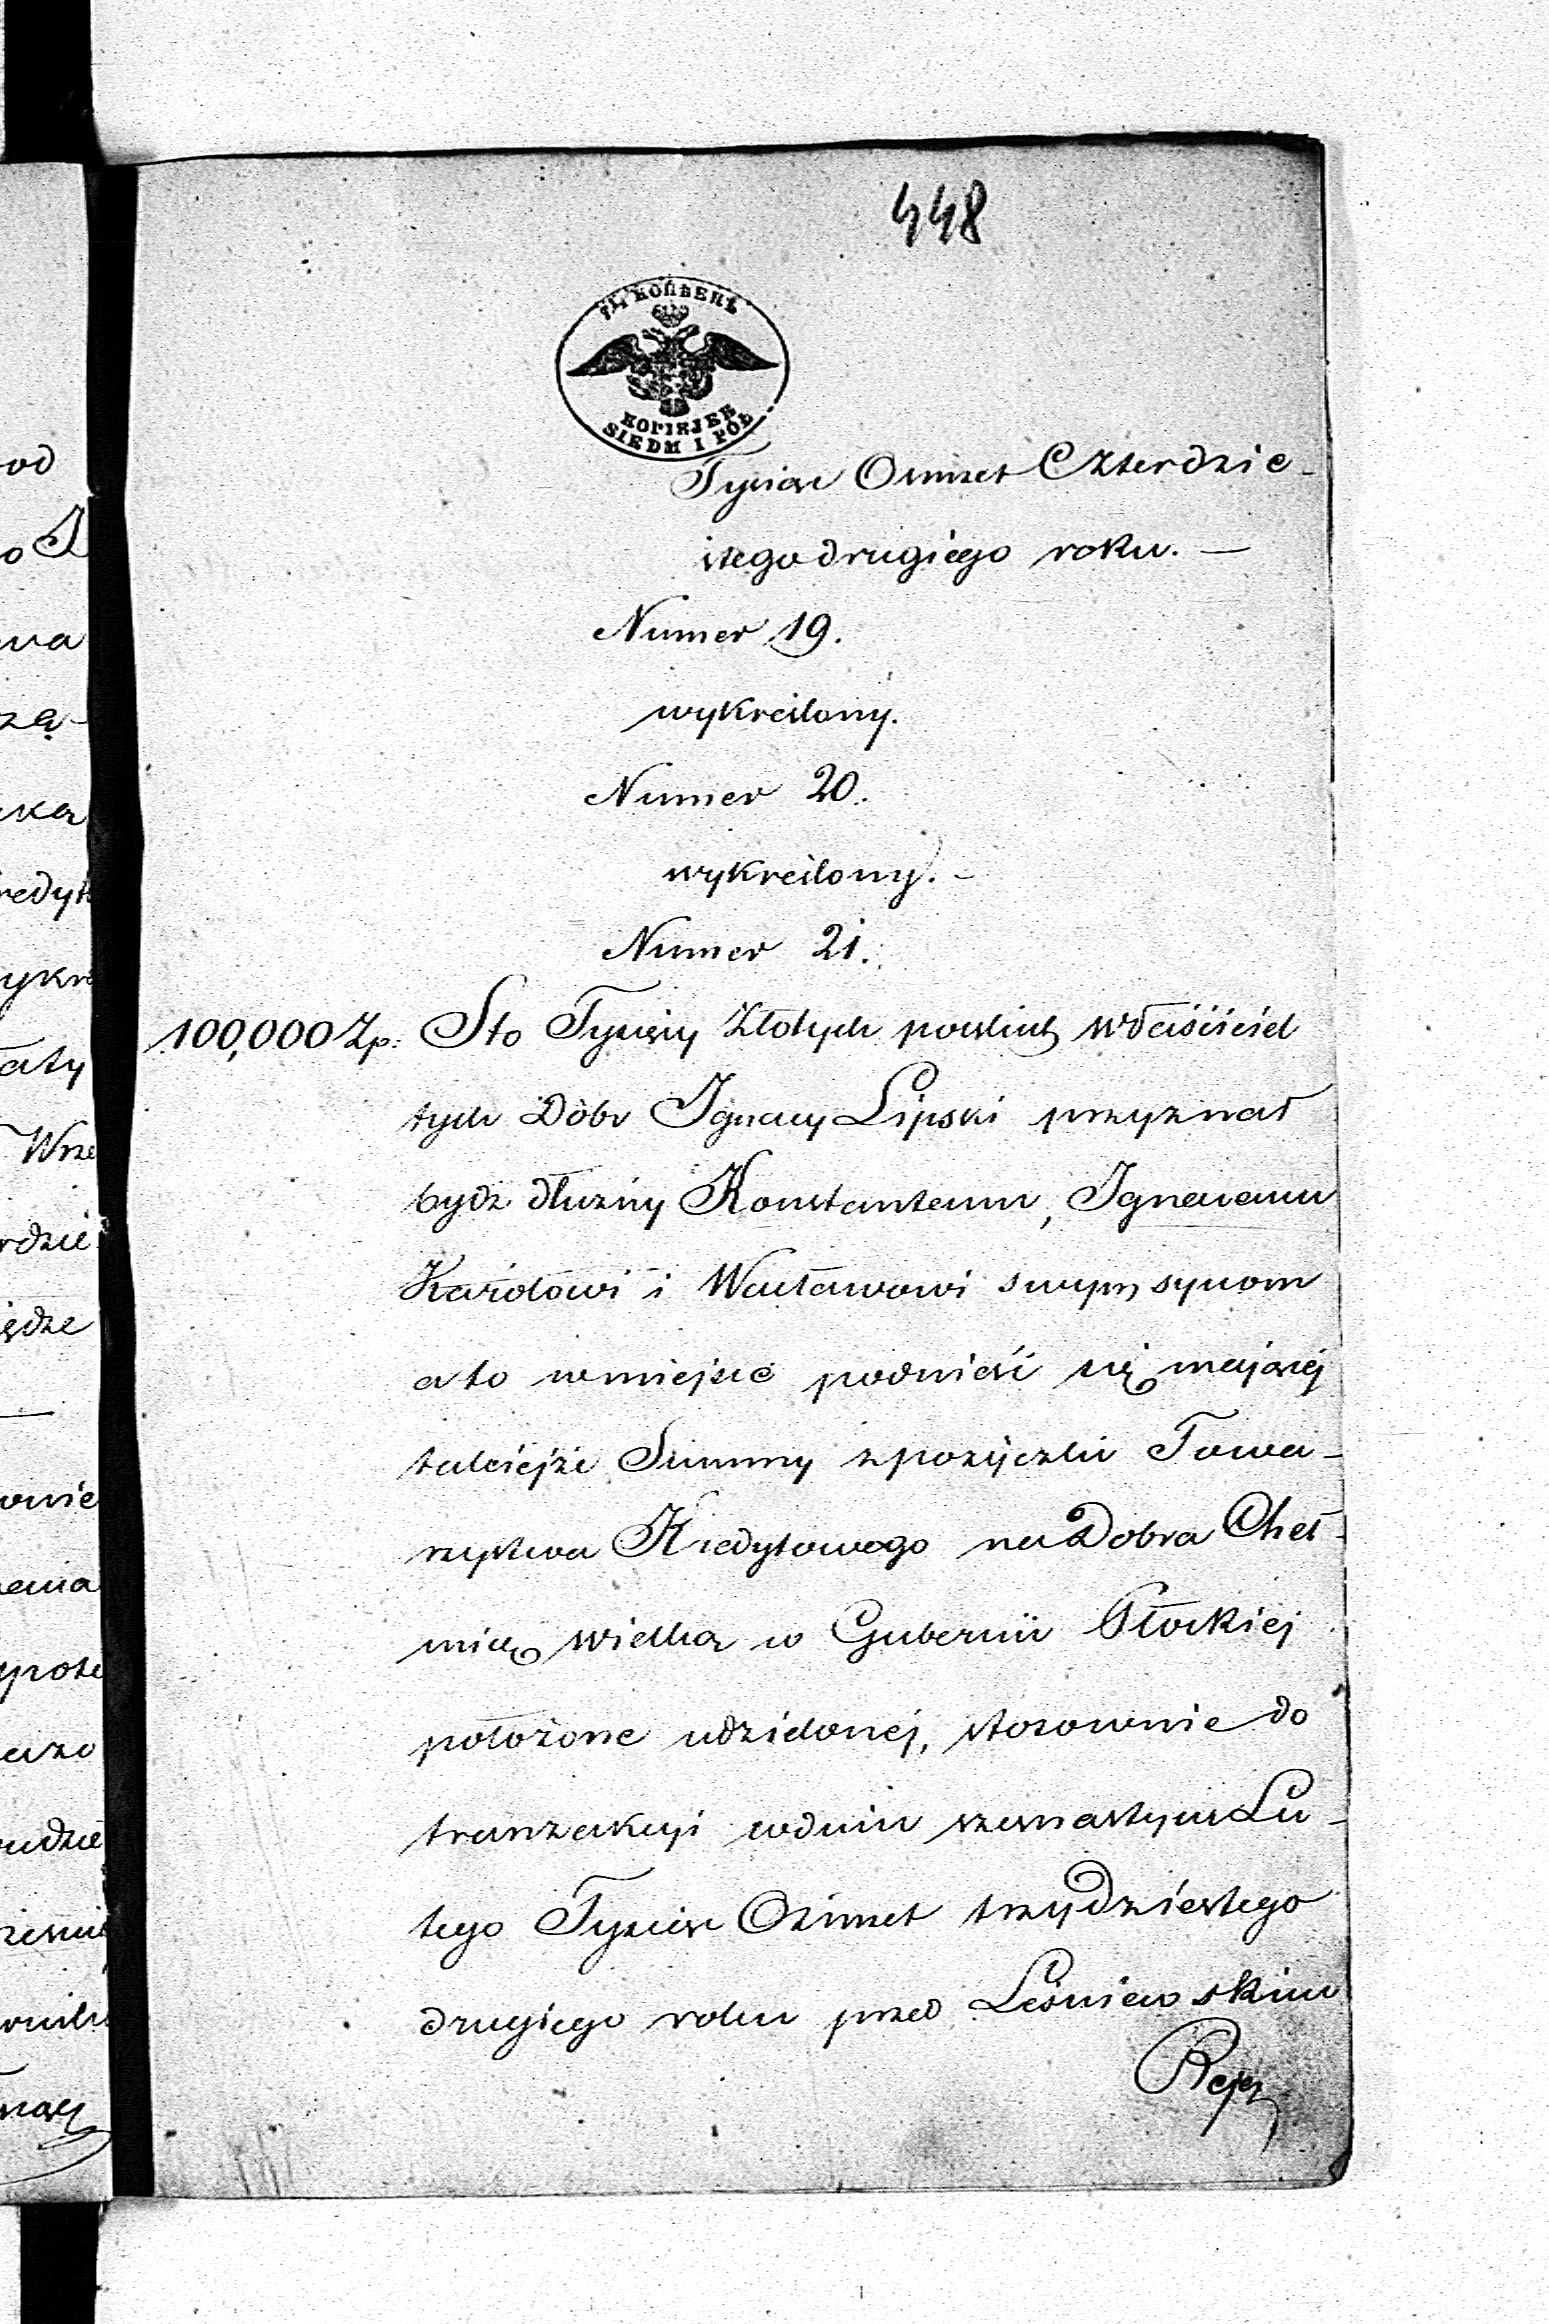 448
7½ КОПѢЕКЪ
KOPIEJEK
SIEDM I PÓŁ
Tysiąc Osmset Czterdzie-
stego drugiego roku. —
Numer 19.
wykreślony.
Numer 20.
wykreślony. –
Numer 21.
100,000 Zp. Sto Tysięcy Złotych polskich właściciel
tych Dóbr Ignacy Lipski przyznał
bydz dłużny Konstantemu, Ignacemu
Karolowi i Wacławowi swym synom
a to w miejsce podnieść się mającej
takiejże Summy z pożyczki Towa-
rzystwa Kredytowego na Dobra Cheł-
micę wielką w Gubernii Płockiej
położone udzielonej, stosownie do
tranzakcyi w dniu szesnastym Lu-
tego Tysiąc Ośmset trzydziestego
drugiego roku przed Leśniewskim
Rejen
od
wa
szą-
redyt
ykre
aty
Wrze
rdzie
iędze